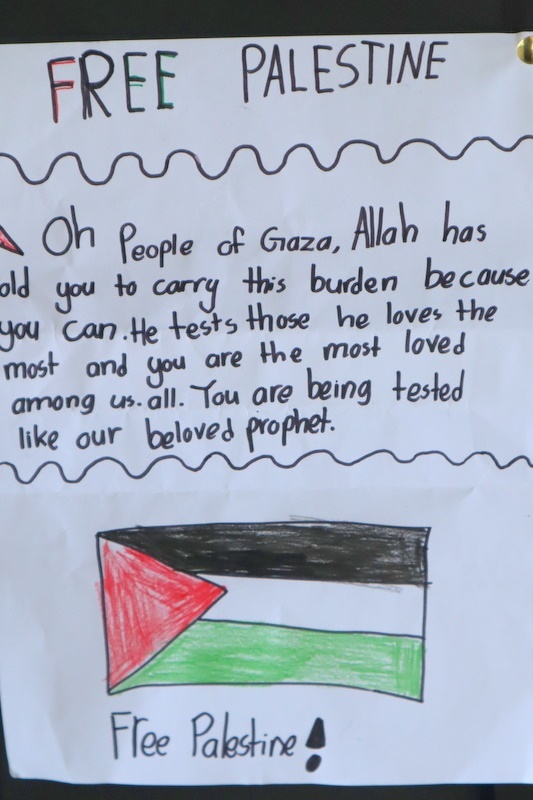 FREE PALESTINE
Oh People of Gaza, Allah has
old you to carry this burden because
you can. He tests those he loves the
most and you are the most loved
among us. all. You are being tested
like our beloved prophet.
Free Palestine!